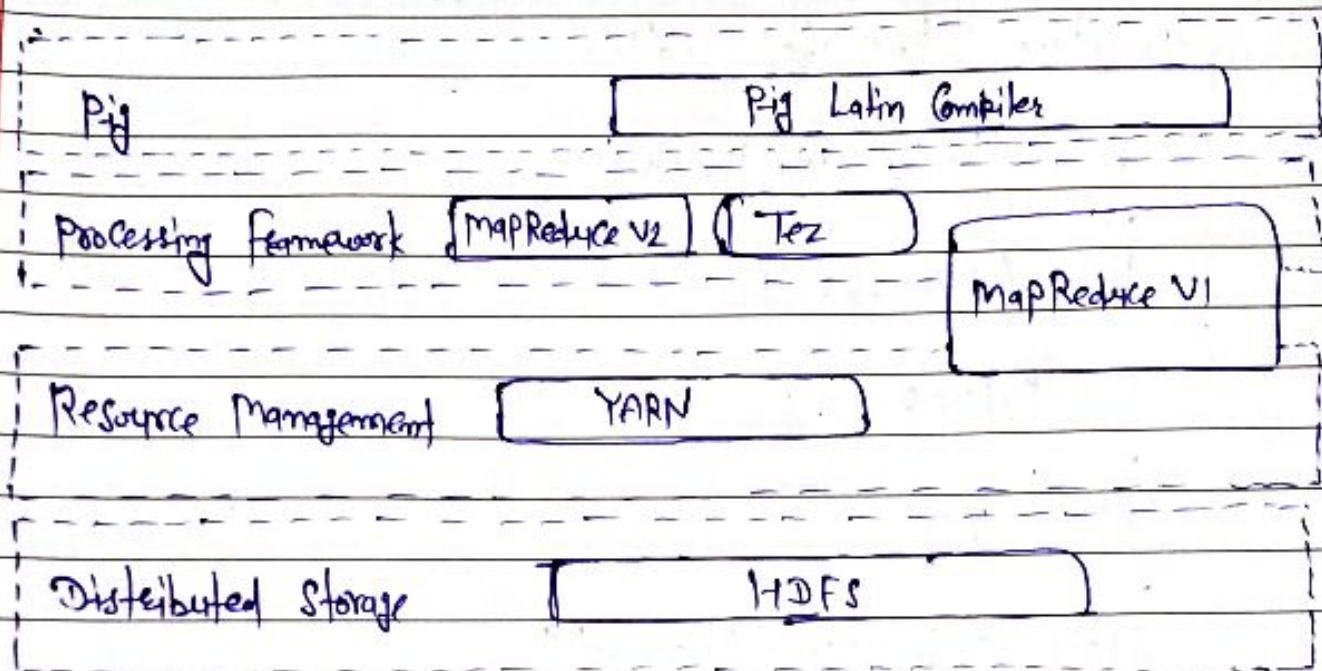 Pig Pig Latin Compiler
Processing Framework MapReduce V2 Tez
MapReduce V1
Resource Management YARN
Distributed Storage HDFS